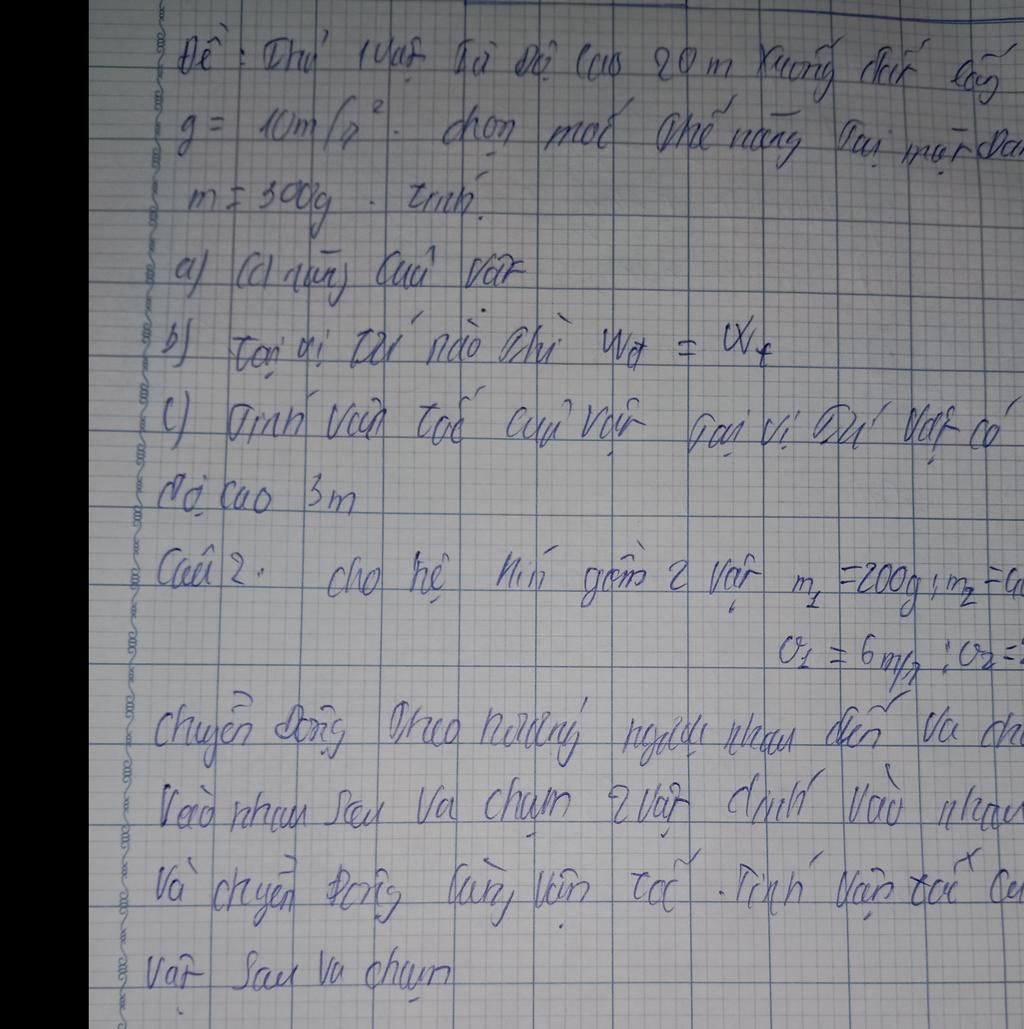 Đề : Thả 1 vật từ độ cao 20 m xuống đất lấy
g = 10m/s². chọn mốc thế năng tại mặt đất
m = 300g . tính
a) Cơ năng của vật
b) tại vị trí nào thì Wđ = Wt
c) Tính vận tốc của vật tại vị trí vật có
độ cao 3m
Câu 2. cho hệ kín gồm 2 vật m₁ =200g ; m₂ =
v₁ = 6m/s ; v₂ =
chuyển động theo hướng ngược nhau đến va
vào nhau sau va chạm 2 vật dính vào nhau
và chuyển động cùng vận tốc . Tính vận tốc
vật sau va chạm